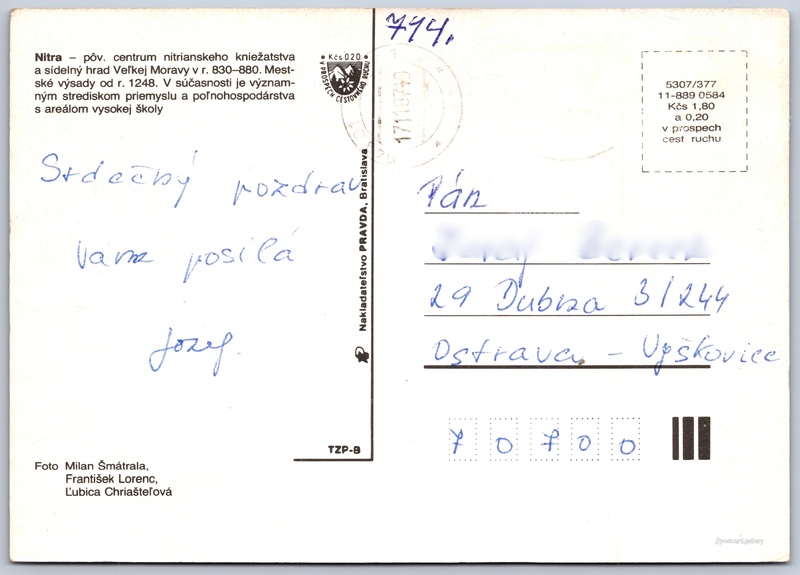 714.
Nitra – pôv. centrum nitrianskeho kniežatstva
a sídelný hrad Veľkej Moravy v r. 830–880. Mest-
ské výsady od r. 1248. V súčasnosti je význam-
ným strediskom priemyslu a poľnohospodárstva
s areálom vysokej školy
Kčs 020
V PROSPECH CESTOVNÉHO RUCHU
17.11.87-19
5307/377
11-889 0584
Kčs 1,80
a 0,20
v prospech
cest ruchu
Srdečný pozdrav
Vám posílá
Jozef.
Nakladateľstvo PRAVDA, Bratislava
Pán
29 Dubna 3/244
Ostrava - Výškovice
7 0 7 0 0
TZP-B
Foto Milan Šmátrala,
František Lorenc,
Ľubica Chriašteľová